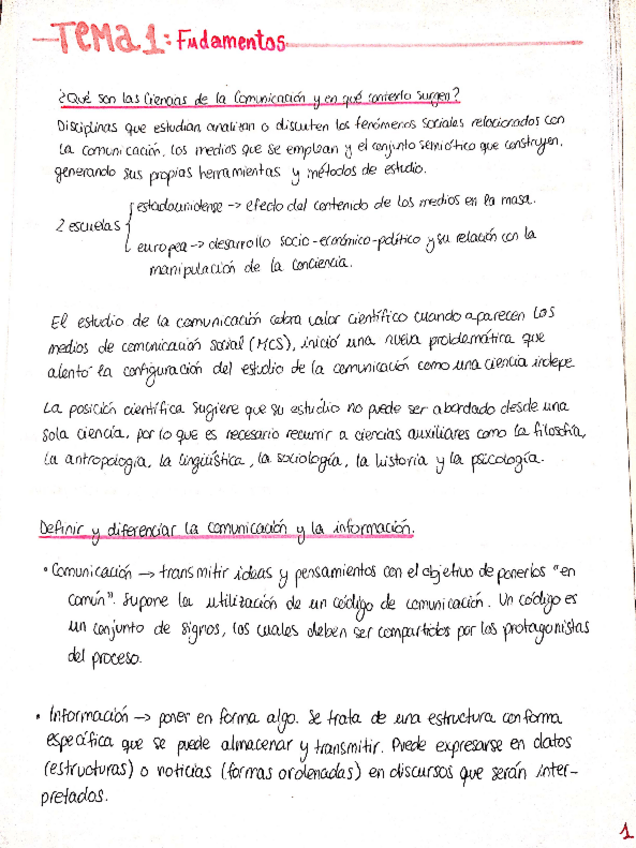 TEMA 1: Fudamentos
¿Qué son las Ciencias de la Comunicación y en qué contexto surgen?
Disciplinas que estudian analizan o discuten los fenómenos sociales relacionados con
la comunicación, los medios que se emplean y el conjunto semiótico que construyen,
generando sus propias herramientas y métodos de estudio.
2 escuelas { estadounidense -> efecto del contenido de los medios en la masa.
europea -> desarrollo socio-económico-político y su relación con la
manipulación de la conciencia.
El estudio de la comunicación cobra valor científico cuando aparecen los
medios de comunicación social (MCS), inició una nueva problemática que
alentó la configuración del estudio de la comunicación como una ciencia indepe
La posición científica sugiere que su estudio no puede ser abordado desde una
sola ciencia, por lo que es necesario recurrir a ciencias auxiliares como la filosofía,
la antropología, la lingüística, la sociología, la historia y la psicología.
Definir y diferenciar la comunicación y la información.
• Comunicación -> transmitir ideas y pensamientos con el objetivo de ponerlos "en
común". Supone la utilización de un código de comunicación. Un código es
un conjunto de signos, los cuales deben ser compartidos por los protagonistas
del proceso.
• Información -> poner en forma algo. Se trata de una estructura con forma
específica que se puede almacenar y transmitir. Puede expresarse en datos
(estructuras) o noticias (formas ordenadas) en discursos que serán inter-
pretados.
1